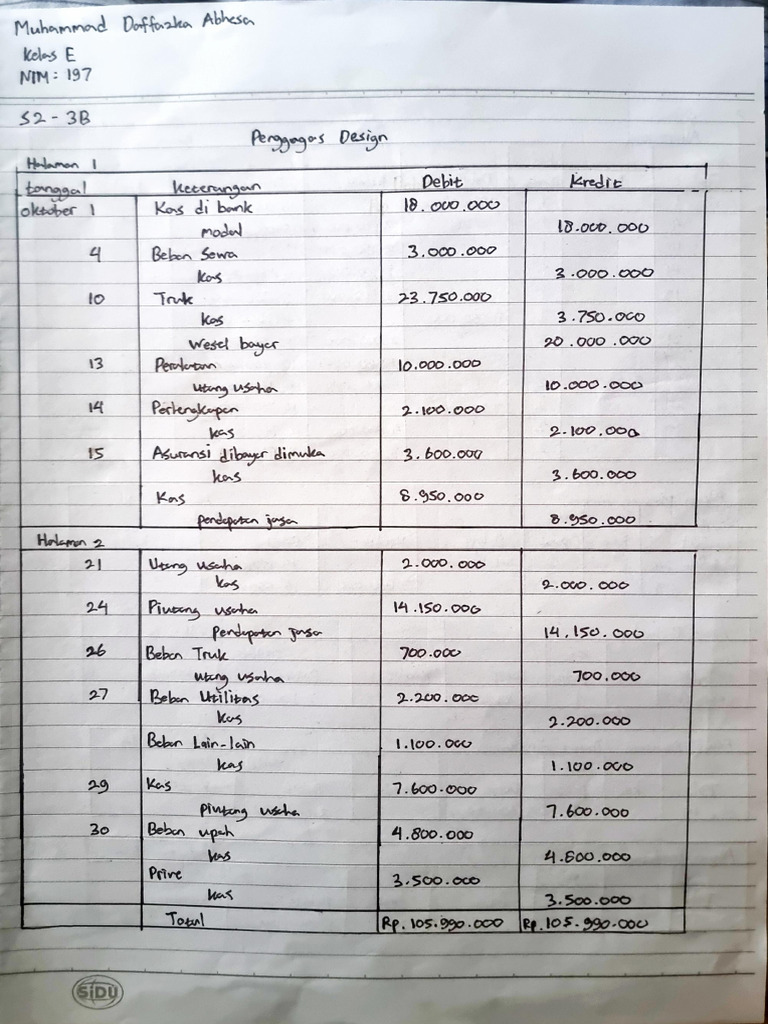 Muhammad Daffazka Abhesa
Kelas E
NIM : 197
S2 - 3B
Penggagas Design
Halaman 1
tanggal keterangan Debit Kredit
Oktober 1 Kas di bank 18.000.000
modal 18.000.000
4 Beban Sewa 3.000.000
Kas 3.000.000
10 Truk 23.750.000
Kas 3.750.000
Wesel bayar 20.000.000
13 Peralatan 10.000.000
Utang usaha 10.000.000
14 Perlengkapan 2.100.000
kas 2.100.000
15 Asuransi dibayar dimuka 3.600.000
kas 3.600.000
Kas 8.950.000
pendapatan jasa 8.950.000
Halaman 2
21 Utang usaha 2.000.000
kas 2.000.000
24 Piutang usaha 14.150.000
Pendapatan jasa 14.150.000
26 Beban Truk 700.000
utang usaha 700.000
27 Beban Utilitas 2.200.000
Kas 2.200.000
Beban Lain-lain 1.100.000
kas 1.100.000
29 Kas 7.600.000
Piutang usaha 7.600.000
30 Beban upah 4.800.000
kas 4.800.000
Prive 3.500.000
kas 3.500.000
Total Rp. 105.990.000 Rp. 105.990.000
SiDU